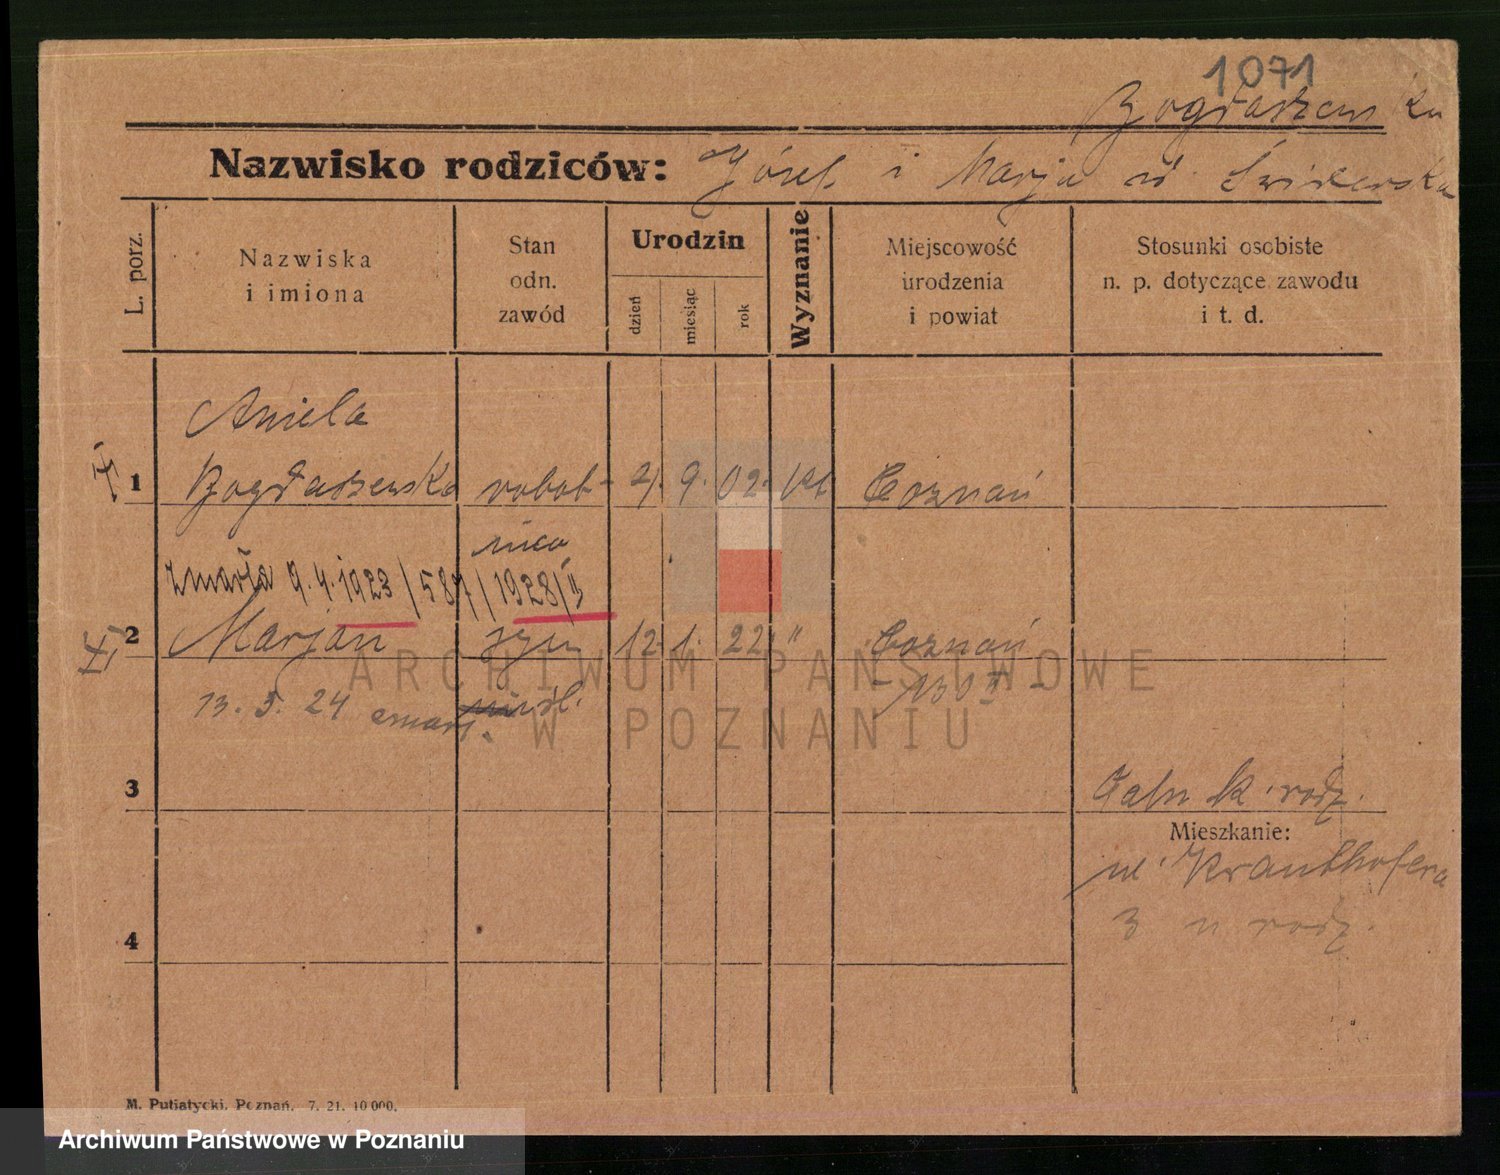 1071
Bogdaszewska
Nazwisko rodziców: Józef i Marja
L. porz.
Nazwiska
i imiona
Stan
odn.
zawód
Urodzin
dzień
miesiąc
rok
Wyznanie
Miejscowość
urodzenia
i powiat
Stosunki osobiste
n. p. dotyczące zawodu
i t. d.
Aniela
1 Bogdaszewska robot- 9. 02. kat Poznań
nica
zmarła 9.4.1923/587/1928/II
2 Marjan syn 12. 1. 22. " Poznań
13. 5. 24 zmarł.
3
k. rodz.
Mieszkanie:
ul. Krauthofera
3 u rodz.
4
M. Putiatycki. Poznań. 7. 21. 10 000.
ARCHIWUM PAŃSTWOWE
W POZNANIU
Archiwum Państwowe w Poznaniu